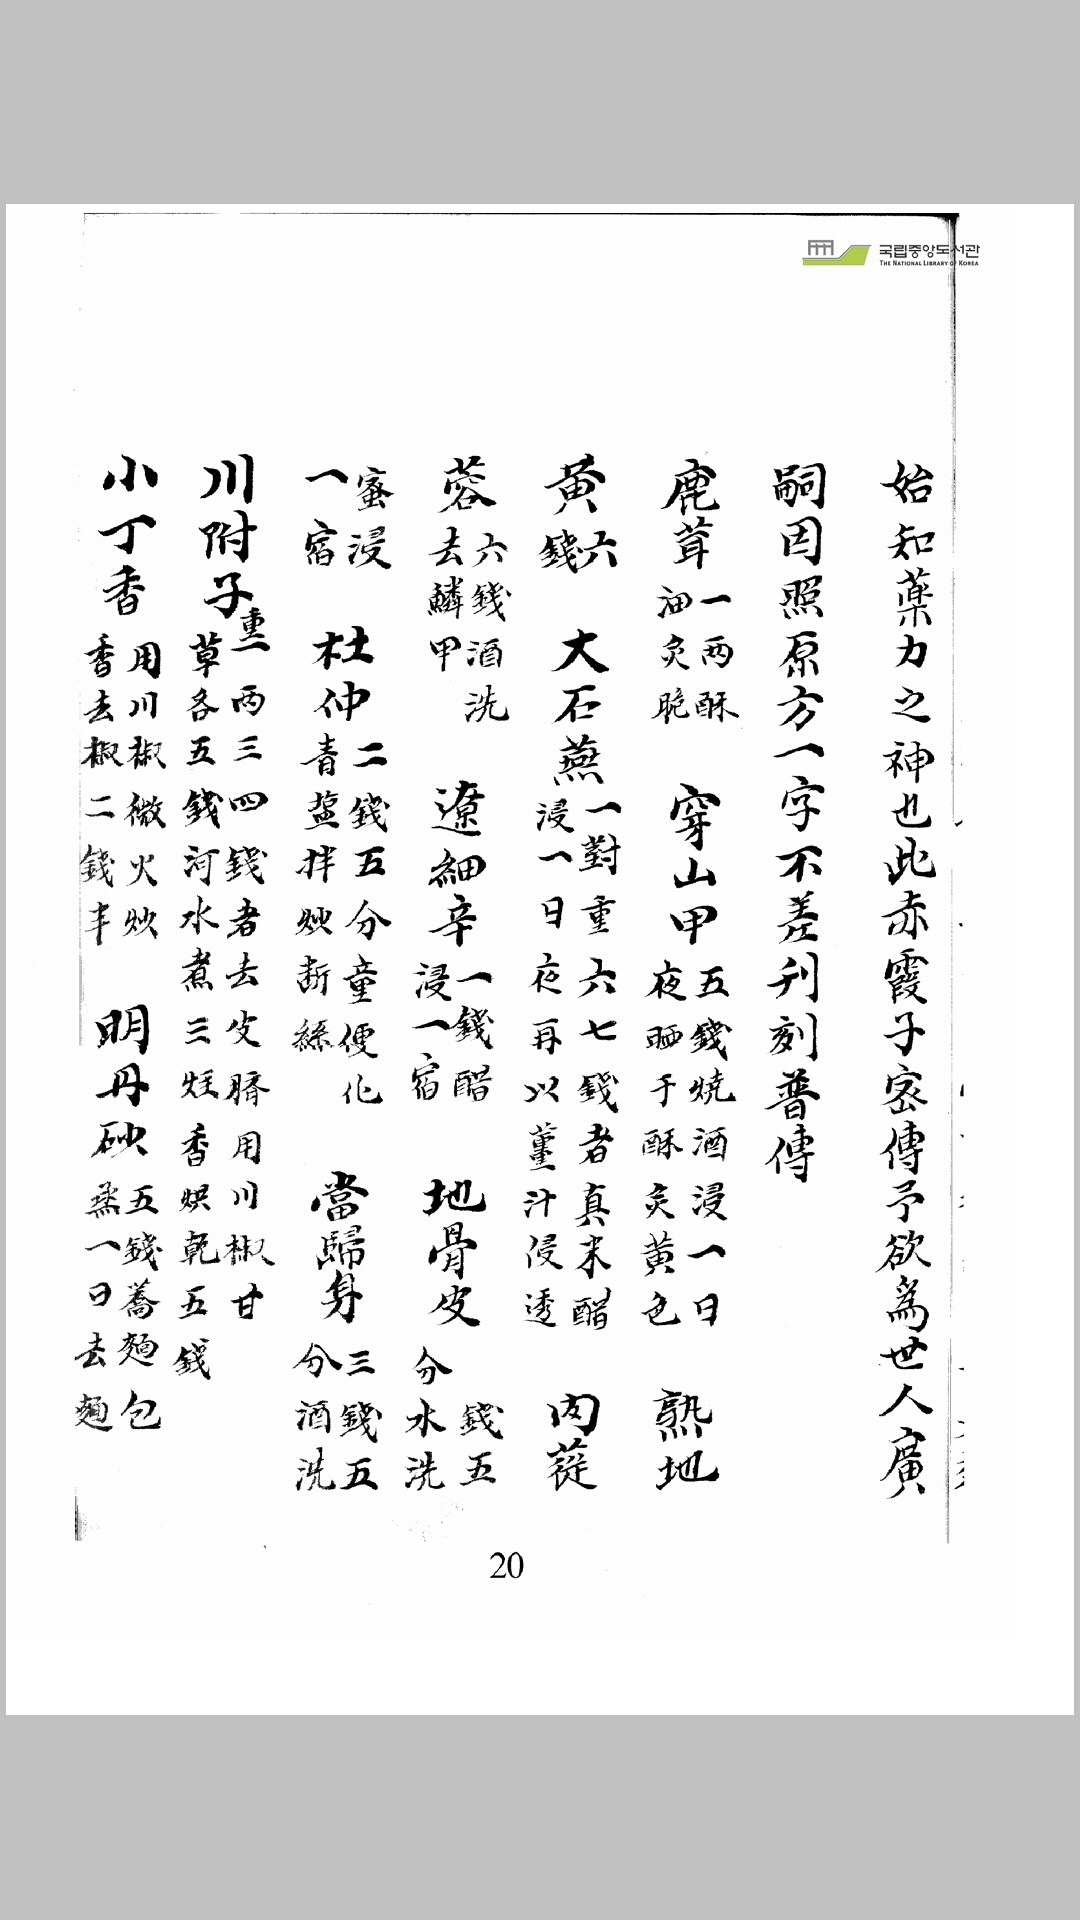 국립중앙도서관
THE NATIONAL LIBRARY OF KOREA
始知藥力之神也此赤霞子密傳予欲爲世人廣
嗣因照原方一字不差刋刻普傳
鹿茸一两酥油炙脆 穿山甲五錢燒酒浸一日夜晒于酥炙黄色 熟地
黄六錢 大石燕一對重六七錢者真米醋浸一日夜再以薑汁侵透 肉蓯
蓉六錢酒洗去鱗甲 遼細辛一錢醋浸一宿 地骨皮錢五分水洗
蜜浸一宿 杜仲二錢五分童便化青盐拌炒断絲 當歸身三錢五分酒洗
川附子重一两三四錢者去皮臍用川椒甘草各五錢河水煮三炷香烘乾五錢
小丁香用川椒微火炒香去椒二錢半 明丹砂五錢蕎麵包蒸一日去麵
20